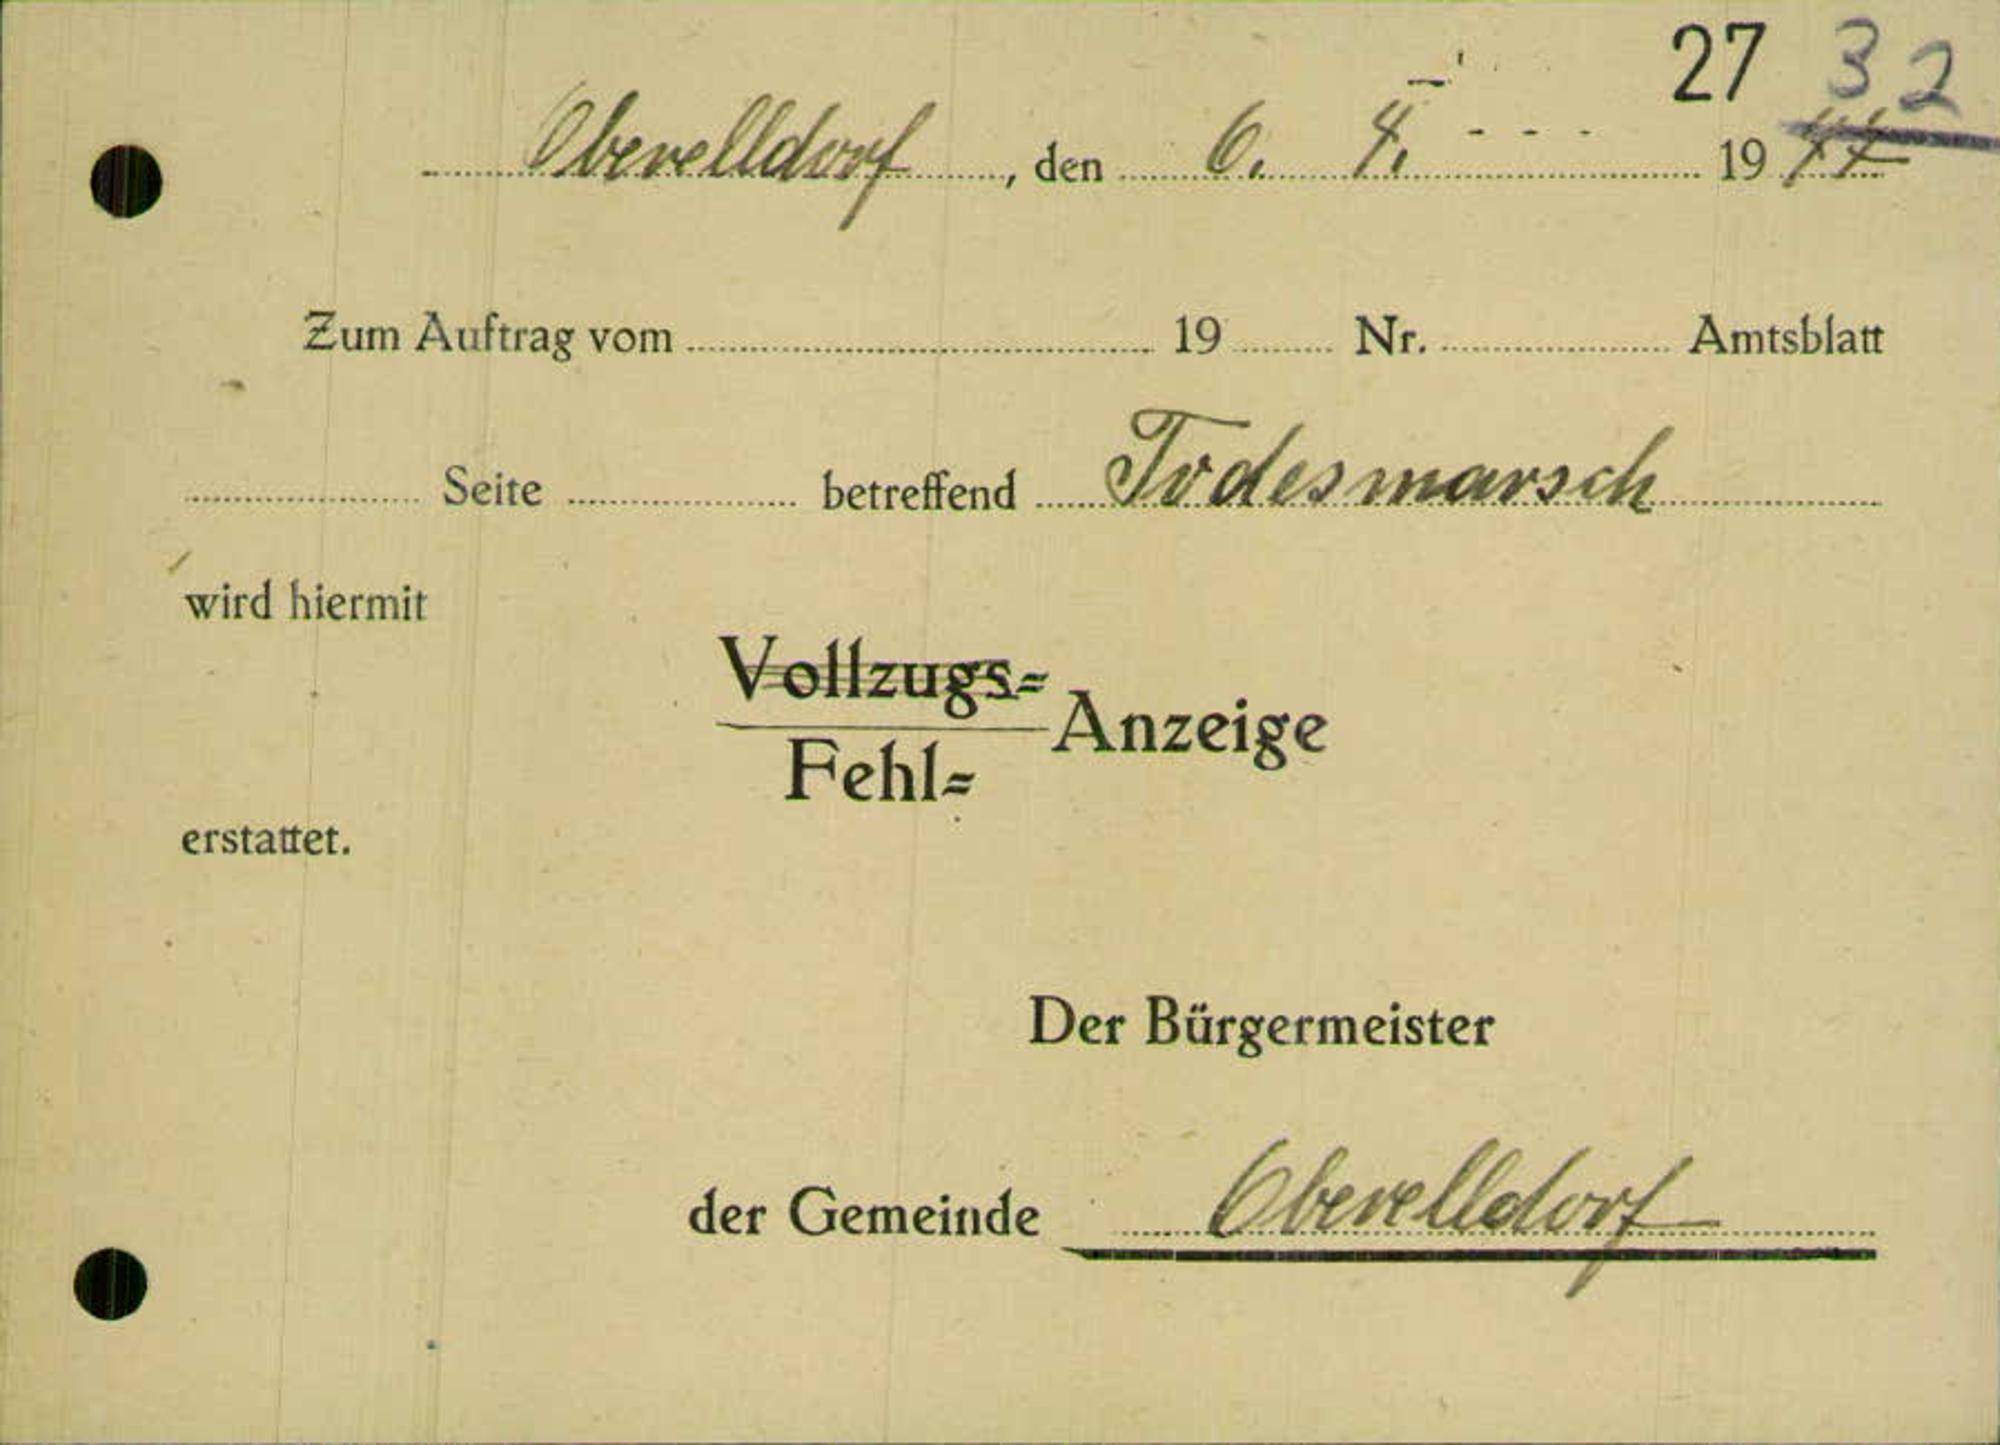 27 32
Oberelldorf, den 6. 4. 1947
Zum Auftrag vom 19 Nr. Amtsblatt
Seite betreffend Todesmarsch
wird hiermit
Vollzugs=
Anzeige
Fehl=
erstattet.
Der Bürgermeister
der Gemeinde Oberelldorf